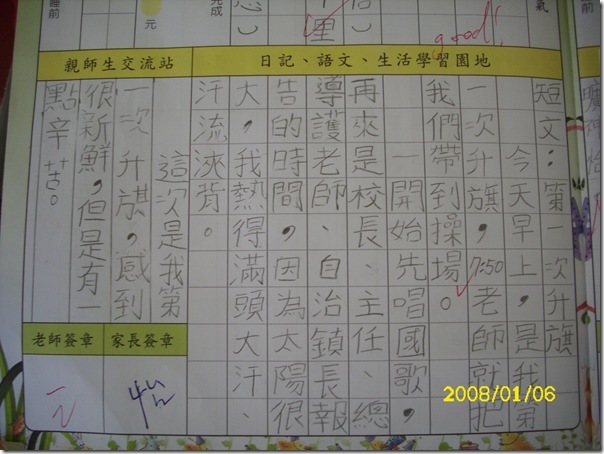 氣
good!
完成
元
睡前
日記、語文、生活學習園地
短文：第一次升旗
今天早上，是我第
一次升旗，7:50老師就把
我們帶到操場。
一開始先唱國歌，
再來是校長、主任、總
導護老師、自治鎮長報
告的時間，因為太陽很
大，我熱得滿頭大汗、
汗流浹背。
親師生交流站
這次是我第
一次升旗，感到
很新鮮，但是有一
點辛苦。
家長簽章
老師簽章
2008/01/06